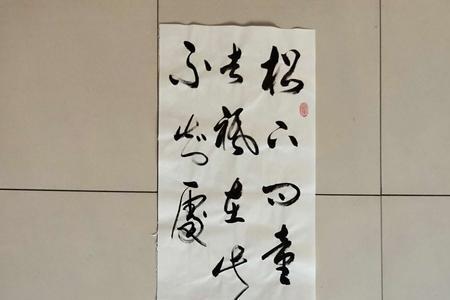 松下問童
去祇在此
不知處